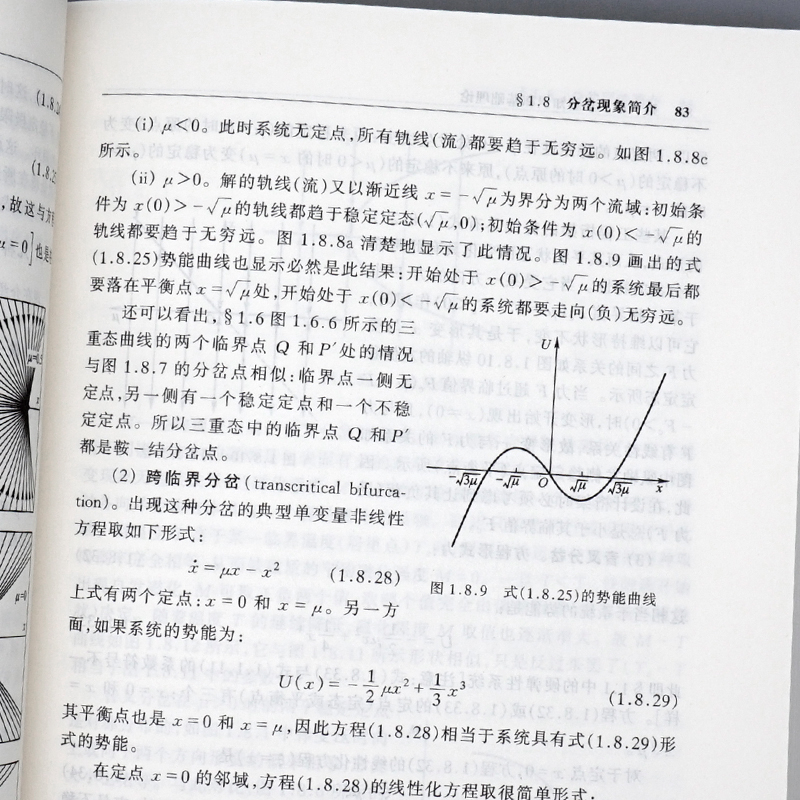 §1.8 分岔现象简介 83
(i) μ<0。此时系统无定点,所有轨线(流)都要趋于无穷远。如图 1.8.8c
所示。
(ii) μ>0。解的轨线(流)又以渐近线 x=-√μ为界分为两个流域:初始条
件为 x(0)>-√μ的轨线都趋于稳定定态(√μ,0);初始条件为 x(0)<-√μ的
轨线都要趋于无穷远。图 1.8.8a 清楚地显示了此情况。图 1.8.9 画出的式
(1.8.25)势能曲线也显示必然是此结果:开始处于 x(0)>-√μ的系统最后都
要落在平衡点 x=√μ处,开始处于 x(0)<-√μ的系统都要走向(负)无穷远。
还可以看出,§1.6 图 1.6.6 所示的三
重态曲线的两个临界点 Q 和P′处的情况
与图 1.8.7 的分岔点相似:临界点一侧无
定点,另一侧有一个稳定定点和一个不稳
定定点。所以三重态中的临界点 Q 和P′
都是鞍-结分岔点。
(2) 跨临界分岔(transcritical bifurca-
tion)。出现这种分岔的典型单变量非线性
方程取如下形式:
ẋ=μx-x² (1.8.28)
上式有两个定点:x=0 和 x=μ。另一方
面,如果系统的势能为:
U
-√3μ -√μ O √μ √3μ x
图 1.8.9 式(1.8.25)的势能曲线
U(x)=-1/2 μx²+1/3 x³ (1.8.29)
其平衡点也是 x=0 和 x=μ,因此方程(1.8.28)相当于系统具有式(1.8.29)形
式的势能。
在定点 x=0 的邻域,方程(1.8.28)的线性化方程取很简单形式:
(1.8.2
(1.8.2
,故这与方
μ=0]也是
μ=0.5
x